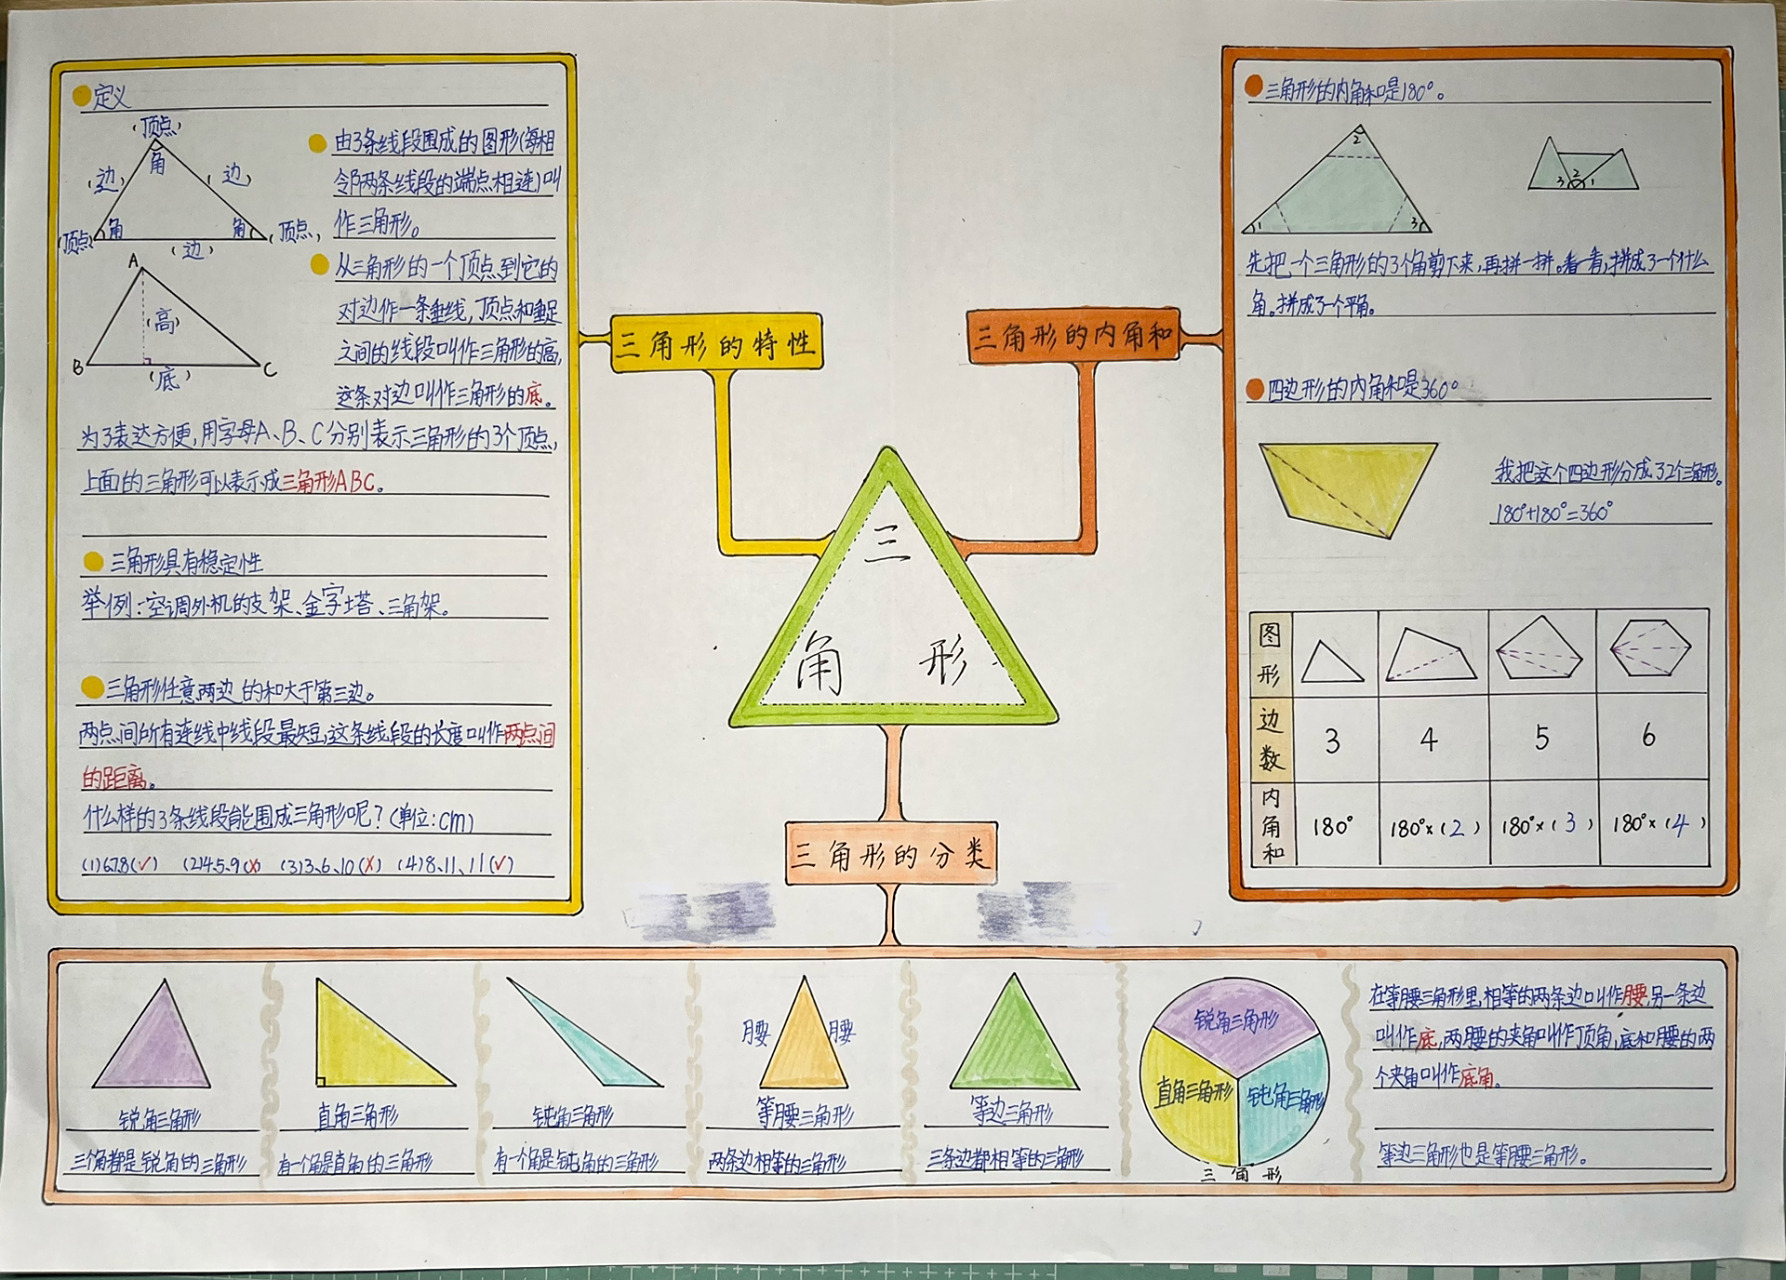 定义
(顶点)
角
(边)
(边)
(顶点)
角
角
(顶点)
(边)
由3条线段围成的图形(每相
邻两条线段的端点相连)叫
作三角形。
A
(高)
B
(底)
C
从三角形的一个顶点到它的
对边作一条垂线,顶点和垂足
之间的线段叫作三角形的高,
这条对边叫作三角形的底。
为了表达方便,用字母A、B、C分别表示三角形的3个顶点,
上面的三角形可以表示成三角形ABC。
三角形具有稳定性
举例:空调外机的支架、金字塔、三角架。
三角形任意两边的和大于第三边。
两点间所有连线中线段最短,这条线段的长度叫作两点间
的距离。
什么样的3条线段能围成三角形呢?(单位:cm)
(1)6.7.8(✓) (2)4.5.9(x) (3)3、6、10(x) (4)8、11、11(✓)
三角形的特性
三角形的内角和
三
角 形
三角形的分类
三角形的内角和是180°。
2
1
3
3 2 1
先把一个三角形的3个角剪下来,再拼一拼。看一看,拼成了一个什么
角。拼成了一个平角。
四边形的内角和是360°
我把这个四边形分成了2个三角形。
180°+180°=360°
图形
边数 3 4 5 6
内角和 180° 180°×(2) 180°×(3) 180°×(4)
锐角三角形
三个角都是锐角的三角形
直角三角形
有一个角是直角的三角形
钝角三角形
有一个角是钝角的三角形
腰 腰
等腰三角形
两条边相等的三角形
等边三角形
三条边都相等的三角形
锐角三角形
直角三角形
钝角三角形
三角形
在等腰三角形里,相等的两条边叫作腰,另一条边
叫作底,两腰的夹角叫作顶角,底和腰的两
个夹角叫作底角。
等边三角形也是等腰三角形。